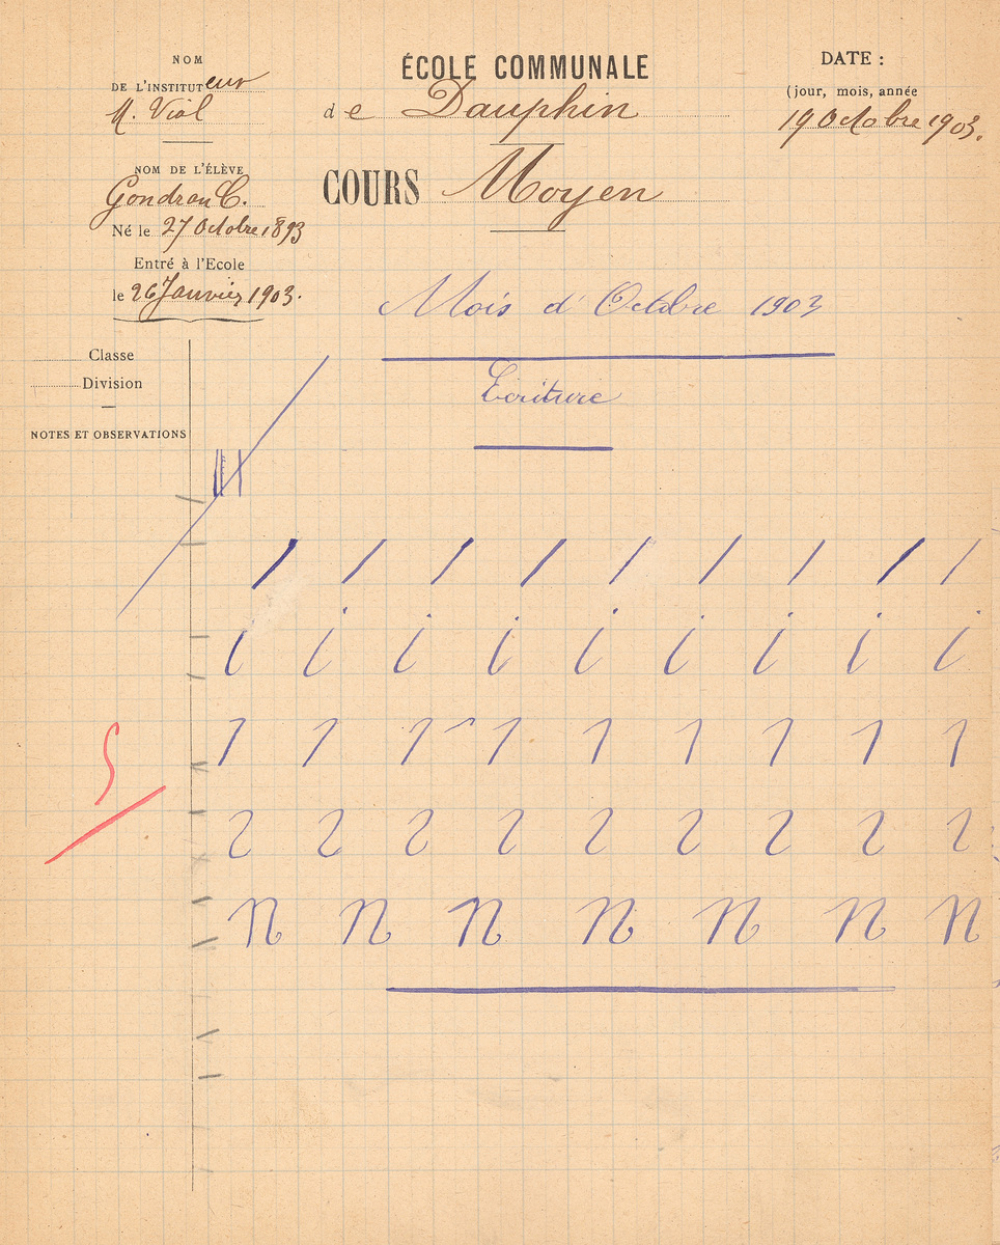 NOM
DE L'INSTITUTeur
M. Vial
NOM DE L'ÉLÈVE
Gondran C.
Né le 27 Octobre 1893
Entré à l'Ecole
le 26 Janvier 1903.
Classe
Division
NOTES ET OBSERVATIONS
ÉCOLE COMMUNALE
de Dauphin
COURS Moyen
DATE :
(jour, mois, année
19 Octobre 1903.
Mois d'Octobre 1903
Ecriture
/ / / / / / / / /
i i i i i i i i i
1 1 1 1 1 1 1 1 1
2 2 2 2 2 2 2 2 2
n n n n n n n
5